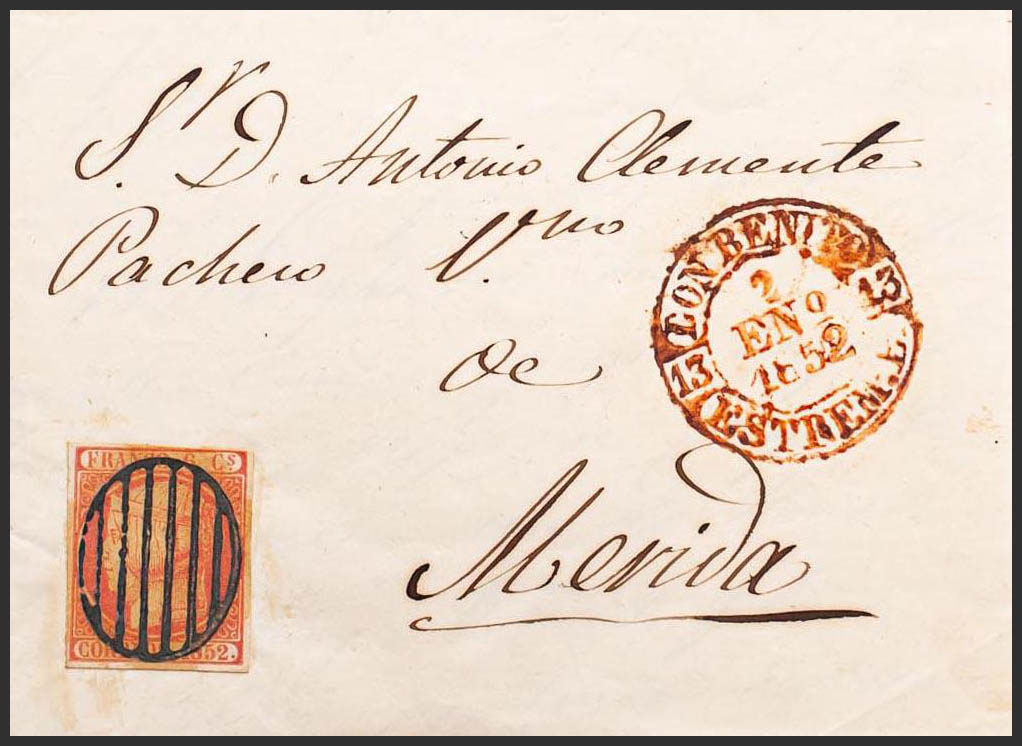 Sr. D. Antonio Clemente
Pacheco V.no
de
Merida
DON BENITO
13 13
2
ENO
1852
ESTREM.E.
FRANCO 6 Cs
CORREOS 1852.